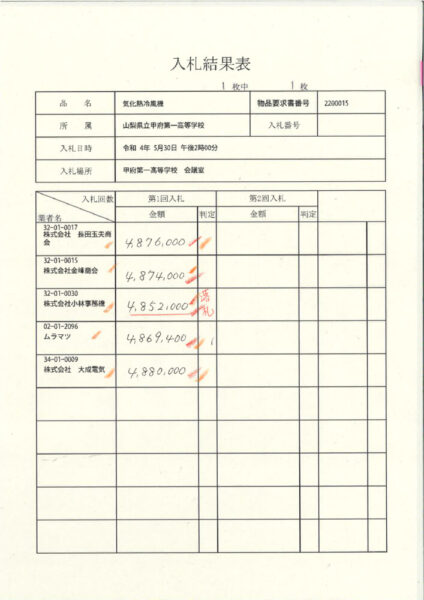 入札結果表
1 枚中 1 枚
品名 気化熱冷風機 物品要求書番号 2200015
所属 山梨県立甲府第一高等学校 入札番号
入札日時 令和 4年 5月30日 午後2時00分
入札場所 甲府第一高等学校 会議室
入札回数 第1回入札 第2回入札
業者名 金額 判定 金額 判定
32-01-0017
株式会社 長田玉夫商
会 4,876,000
32-01-0015
株式会社金峰商会 4,874,000
32-01-0030
株式会社小林事務機 4,852,000 落札
02-01-2096
ムラマツ 4,869,400
34-01-0009
株式会社 大成電気 4,880,000